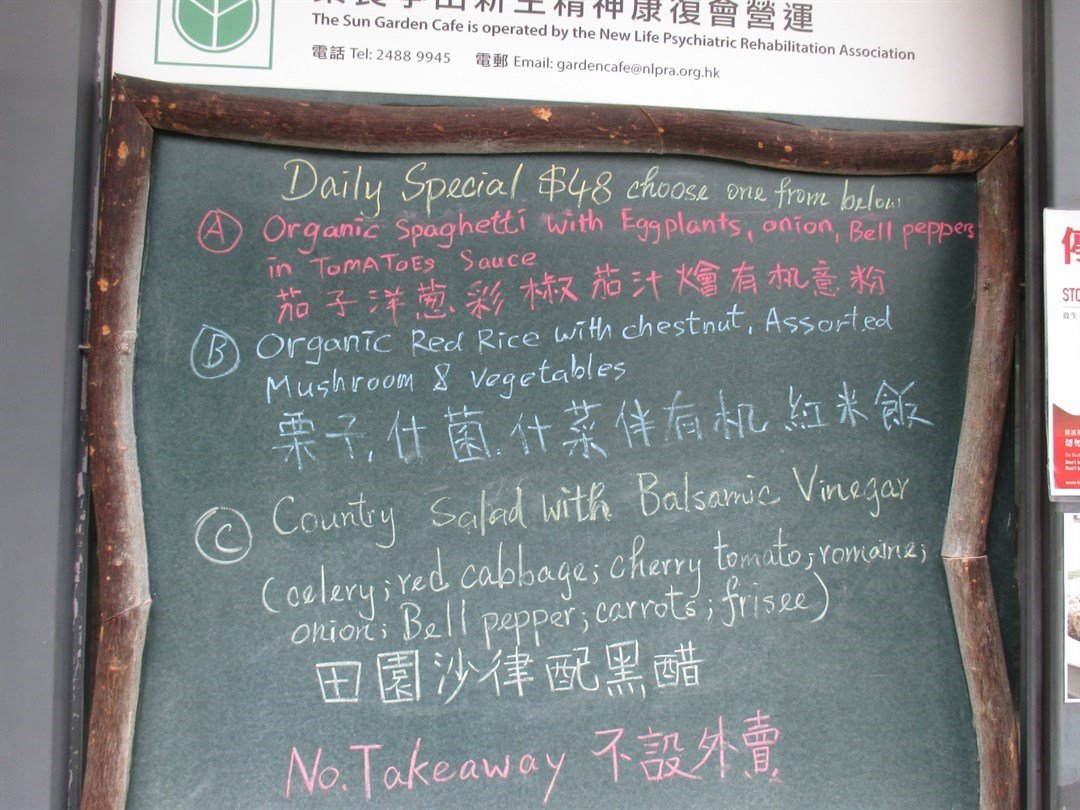 新生精神康復會營運
The Sun Garden Cafe is operated by the New Life Psychiatric Rehabilitation Association
電話 Tel: 2488 9945 電郵 Email: gardencafe@nlpra.org.hk
Daily Special $48 choose one from below
A Organic Spaghetti with Eggplants, onion, Bell peppers
in TOMATOEs Sauce
茄子洋葱彩椒茄汁燴有机意粉
B Organic Red Rice with chestnut, Assorted
Mushroom & Vegetables
栗子,什菌.什菜伴有机紅米飯
C Country Salad with Balsamic Vinegar
(celery; red cabbage; cherry tomato; romaine;
onion; Bell pepper; carrots; frisee)
田園沙律配黑醋
No. Takeaway 不設外賣